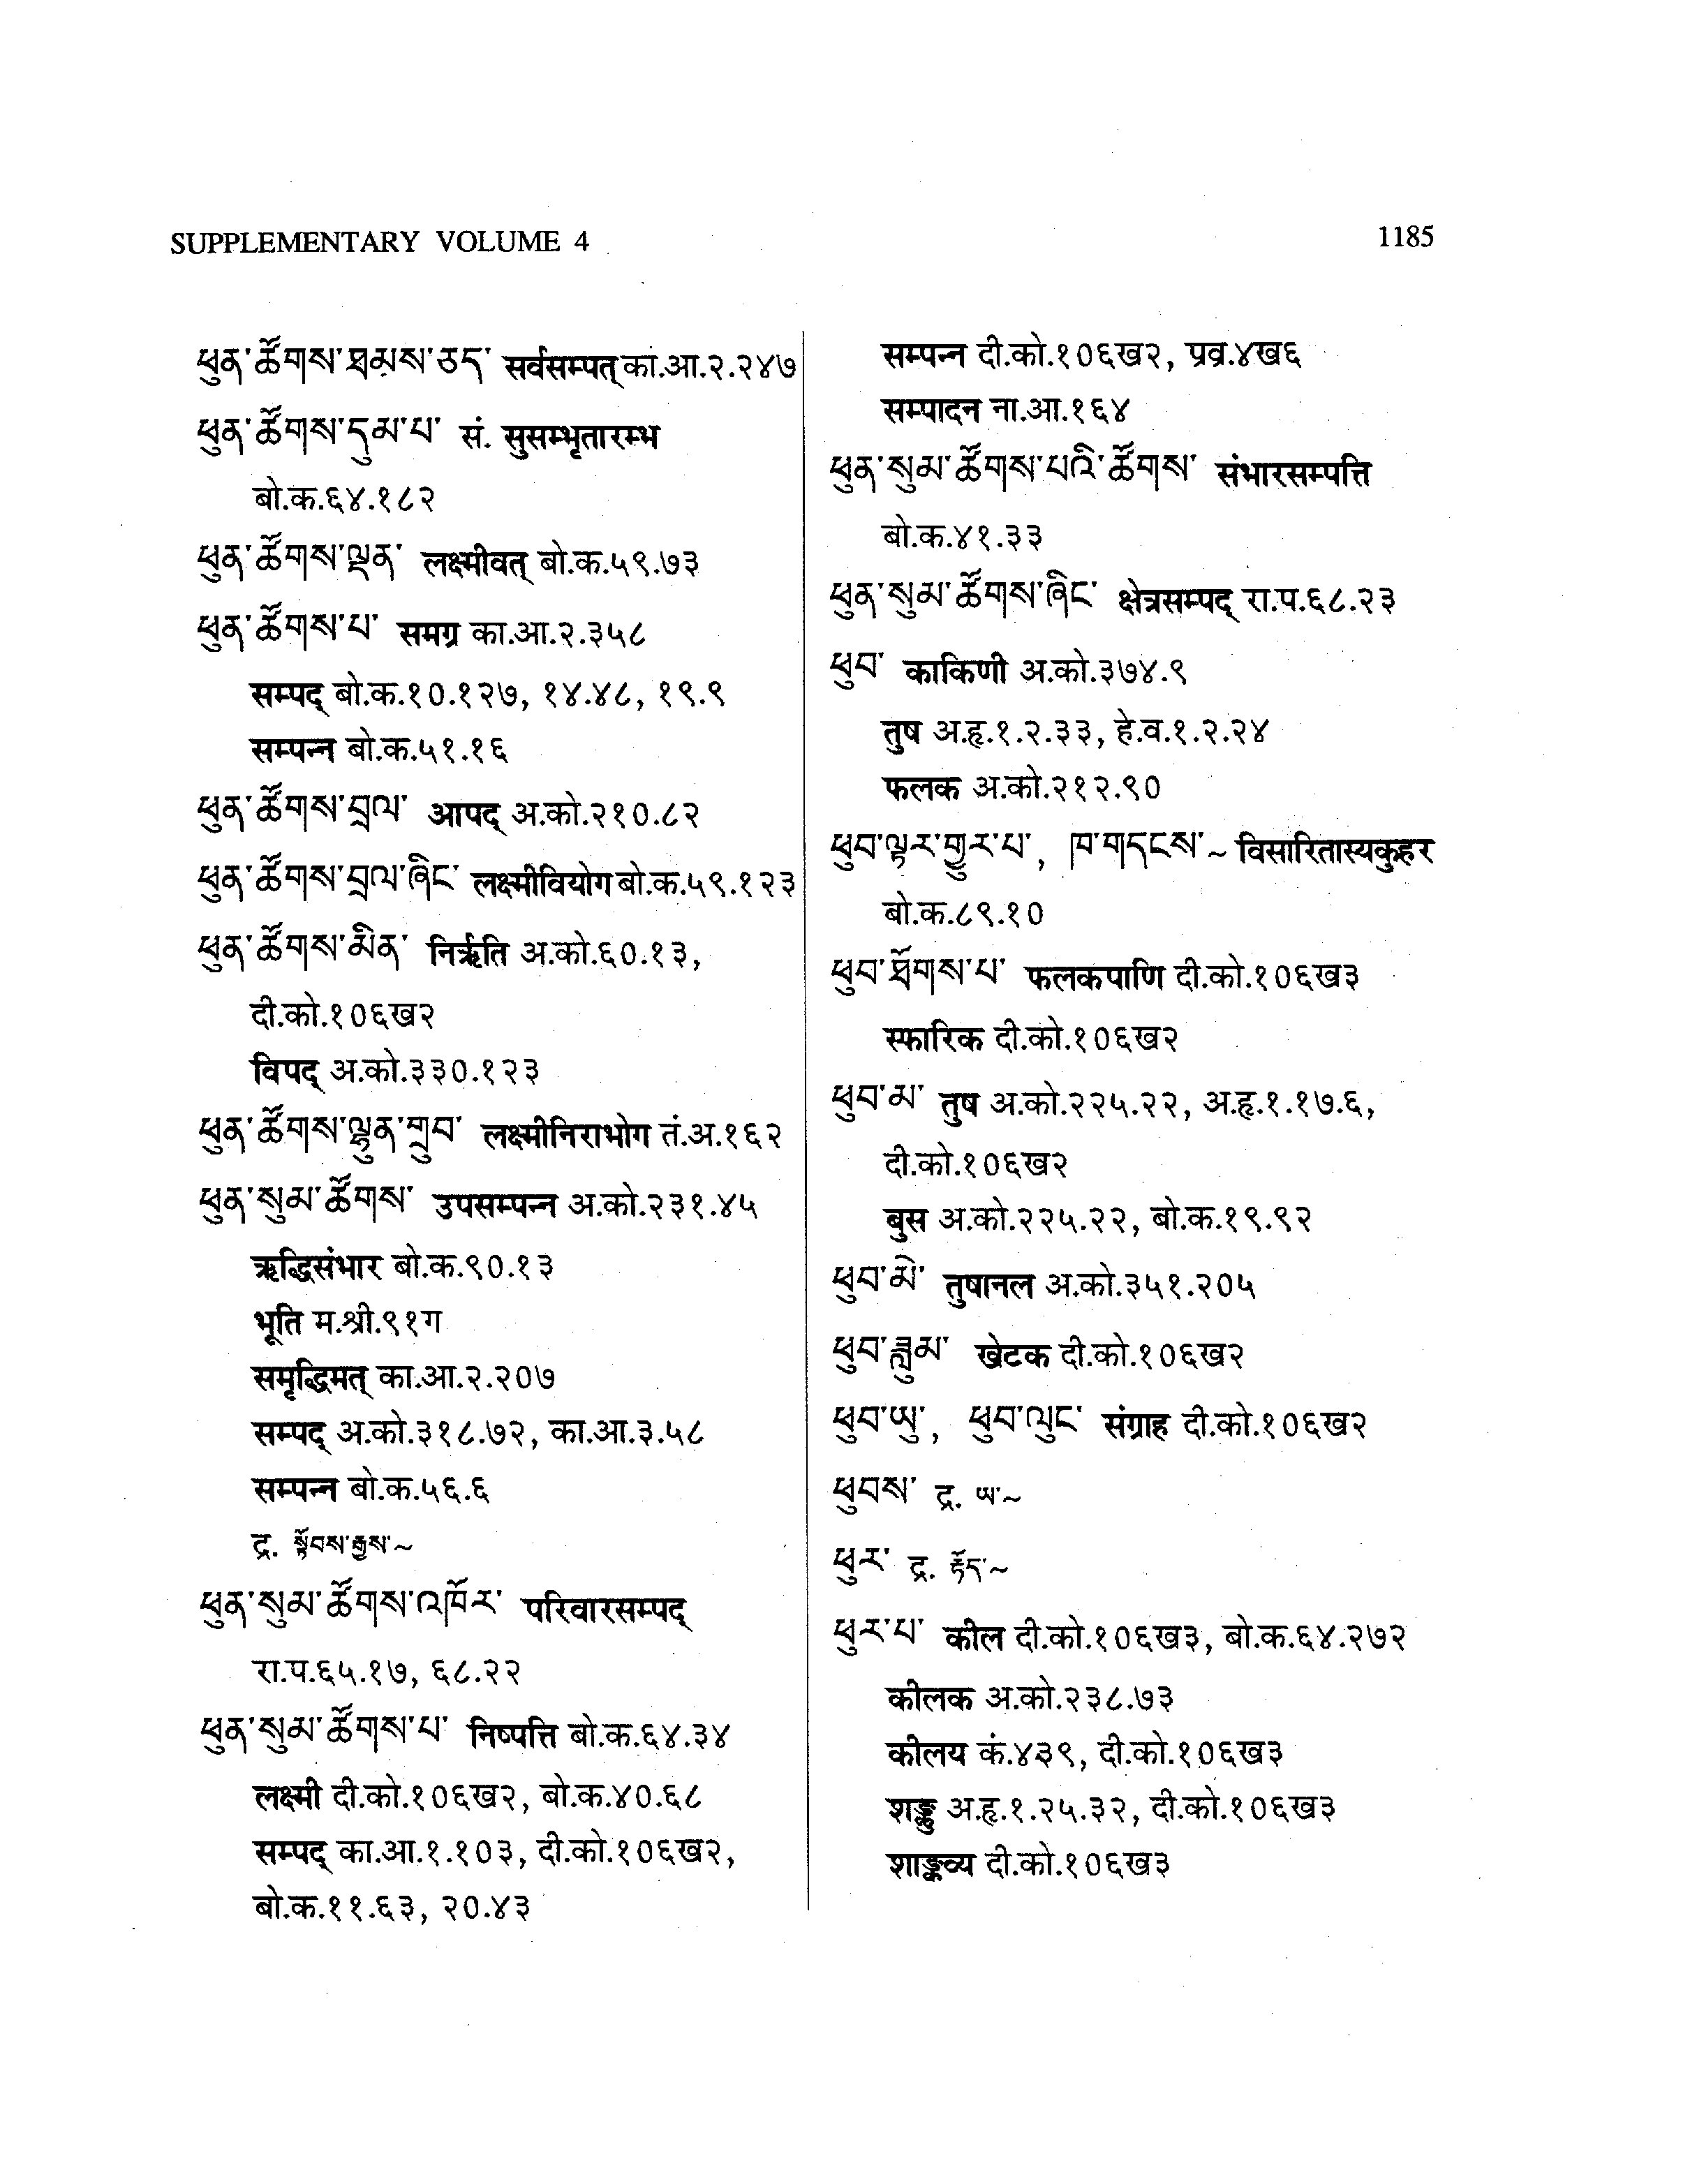 SUPPLEMENTARY VOLUME 4
1185
ཕུན་ཚོགས་ཐམས་ཅད་ सर्वसम्पत् का.आ.२.२४७
ཕུན་ཚོགས་དུམ་པ་ सं. सुसम्भृतारम्भ
बो.क.६४.१८२
ཕུན་ཚོགས་ལྡན་ लक्ष्मीवत् बो.क.५९.७३
ཕུན་ཚོགས་པ་ समग्र का.आ.२.३५८
सम्पद् बो.क.१०.१२७, १४.४८, १९.९
सम्पन्न बो.क.५१.१६
ཕུན་ཚོགས་བྲལ་ आपद् अ.को.२१०.८२
ཕུན་ཚོགས་བྲལ་ཞིང་ लक्ष्मीवियोग बो.क.५९.१२३
ཕུན་ཚོགས་མིན་ निर्ऋति अ.को.६०.१३,
दी.को.१०६ख२
विपद् अ.को.३३०.१२३
ཕུན་ཚོགས་ལྷུན་གྲུབ་ लक्ष्मीनिराभोग तं.अ.१६२
ཕུན་སུམ་ཚོགས་ उपसम्पन्न अ.को.२३१.४५
ऋद्धिसंभार बो.क.९०.१३
भूति म.श्री.९१ग
समृद्धिमत् का.आ.२.२०७
सम्पद् अ.को.३१८.७२, का.आ.३.५८
सम्पन्न बो.क.५६.६
द्र. སྟོབས་རྒྱས་~
ཕུན་སུམ་ཚོགས་འཁོར་ परिवारसम्पद्
रा.प.६५.१७, ६८.२२
ཕུན་སུམ་ཚོགས་པ་ निष्पत्ति बो.क.६४.३४
लक्ष्मी दी.को.१०६ख२, बो.क.४०.६८
सम्पद् का.आ.१.१०३, दी.को.१०६ख२,
बो.क.११.६३, २०.४३
सम्पन्न दी.को.१०६ख२, प्रव्र.४ख६
सम्पादन ना.आ.१६४
ཕུན་སུམ་ཚོགས་པའི་ཚོགས་ संभारसम्पत्ति
बो.क.४१.३३
ཕུན་སུམ་ཚོགས་ཞིང་ क्षेत्रसम्पद् रा.प.६८.२३
ཕུབ་ काकिणी अ.को.३७४.९
तुष अ.हृ.१.२.३३, हे.व.१.२.२४
फलक अ.को.२१२.९०
ཕུབ་ལྟར་གྱུར་པ་, ཁ་གདངས་~ विसारितास्यकुहर
बो.क.८९.१०
ཕུབ་ཐོགས་པ་ फलकपाणि दी.को.१०६ख३
स्फारिक दी.को.१०६ख२
ཕུབ་མ་ तुष अ.को.२२५.२२, अ.हृ.१.१७.६,
दी.को.१०६ख२
बुस अ.को.२२५.२२, बो.क.१९.९२
ཕུབ་མེ་ तुषानल अ.को.३५१.२०५
ཕུབ་ཟླུམ་ खेटक दी.को.१०६ख२
ཕུབ་ཡུ་, ཕུབ་ལུང་ संग्राह दी.को.१०६ख२
ཕུབས་ द्र. ཨ་~
ཕུར་ द्र. རྟོད་~
ཕུར་པ་ कील दी.को.१०६ख३, बो.क.६४.२७२
कीलक अ.को.२३८.७३
कीलय कं.४३९, दी.को.१०६ख३
शङ्कु अ.हृ.१.२५.३२, दी.को.१०६ख३
शाङ्कव्य दी.को.१०६ख३